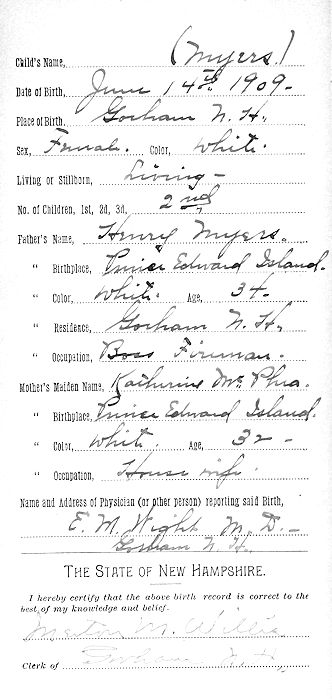 Child's Name, (Myers.)
Date of Birth, June 14th 1909-
Place of Birth, Gorham N.H.
Sex, Female. Color, White.
Living or Stillborn, Living -
No. of Children, 1st, 2d, 3d, 2nd
Father's Name, Henry Myers.
" Birthplace, Prince Edward Island.
" Color, White. Age, 34-
" Residence, Gorham N.H.
" Occupation, Boss Fireman.
Mother's Maiden Name, Katherine Mc Phia.
" Birthplace, Prince Edward Island.
" Color, White. Age, 32-
" Occupation, House wife.
Name and Address of Physician (or other person) reporting said Birth,
E. M. Wight M.D.-
Gorham N.H.
THE STATE OF NEW HAMPSHIRE.
I hereby certify that the above birth record is correct to the
best of my knowledge and belief.
M.
Clerk of Gorham N.H.